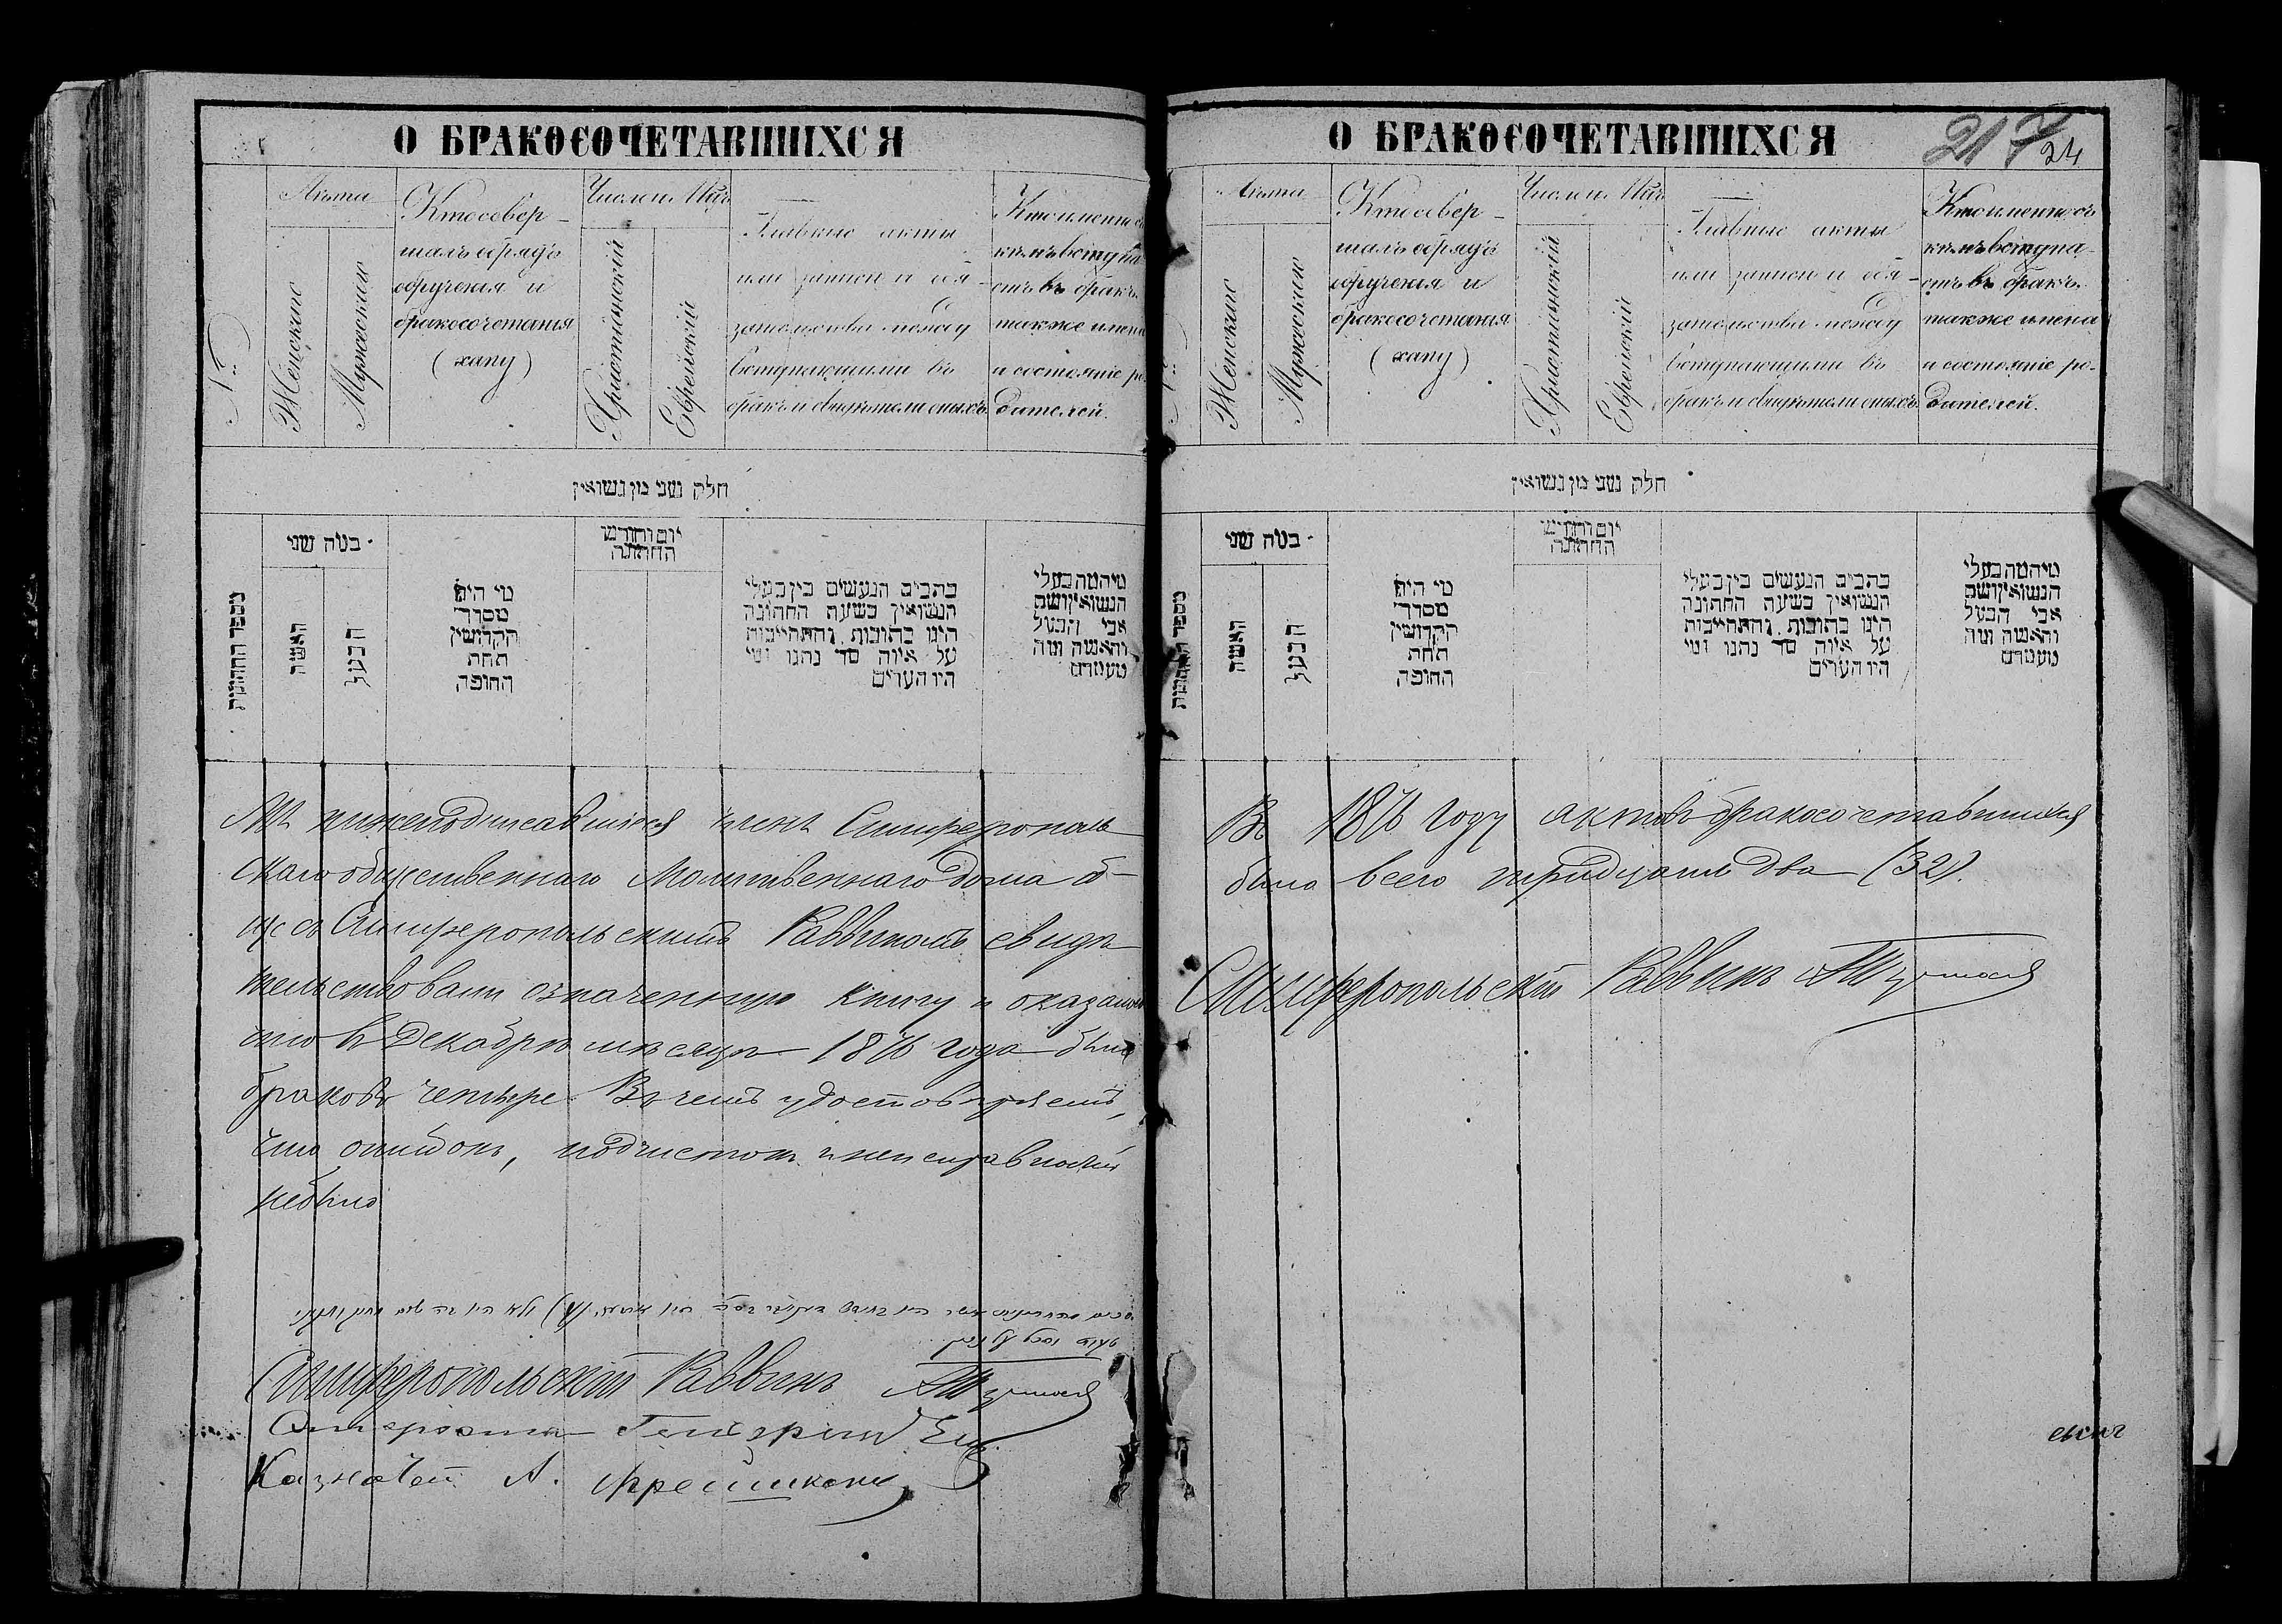 О БРАКОСОЧЕТАВШИХСЯ
№
Лѣта
Женскіе
Мужескіе
Кто совер-
шалъ обрядъ
обрученія и
бракосочетанія
(хапу)
Число и Мѣц
Христіанскій
Еврейскій
Главные акты
или записи и обя-
зательства между
вступающими въ
бракъ и свидѣтели оныхъ
Кто именно съ
кѣмъ вступа
етъ въ бракъ.
также имена
и состояніе ро-
дителей.
חלק שני מן נשואין
מספר החתונות
כמה שני
האשה
הבעל
מי היה
מסדר
הקדושין
תחת
החופה
יום וחודש
החתונה
כתבים הנעשים בין בעלי
הנשואין בשעת החתונה
היינו כתובות והתחייבות
על איזה סך נתנו ומי
היו העדים
מי המה בעלי
הנשואין ושמות
אבי הבעל
והאשה ומה
מעמדם
Мы нижеподписавшіеся члены Симферополь
скаго общественнаго Молитвеннаго дома об-
ще съ Симферопольскимъ Раввиномъ свидѣ
тельствовали означенную книгу и оказалось
что въ Декабрѣ мѣсяцѣ 1876 года было
браковъ четыре. Въ чемъ удостовѣряемъ,
что ошибокъ, подчистокъ и неисправностей
небыло
Симферопольскій Раввинъ
Староста
Казначей А. Фрейшкен
О БРАКОСОЧЕТАВШИХСЯ
217
24
Лѣта
Женскіе
Мужескіе
Кто совер-
шалъ обрядъ
обрученія и
бракосочетанія
(хапу)
Число и Мѣц
Христіанскій
Еврейскій
Главные акты
или записи и обя-
зательства между
вступающими въ
бракъ и свидѣтели оныхъ
Кто именно съ
кѣмъ вступа-
етъ въ бракъ.
также имена
и состояніе ро-
дителей.
חלק שני מן נשואין
מספר החתונות
כמה שני
האשה
הבעל
מי היה
מסדר
הקדושין
תחת
החופה
יום וחודש
החתונה
כתבים הנעשים בין בעלי
הנשואין בשעת החתונה
היינו כתובות והתחייבות
על איזה סך נתנו ומי
היו העדים
מי המה בעלי
הנשואין ושמות
אבי הבעל
והאשה ומה
מעמדם
Въ 1876 году актовъ бракосочетавшихся
было всего тридцать два (32).
Симферопольскій Раввинъ